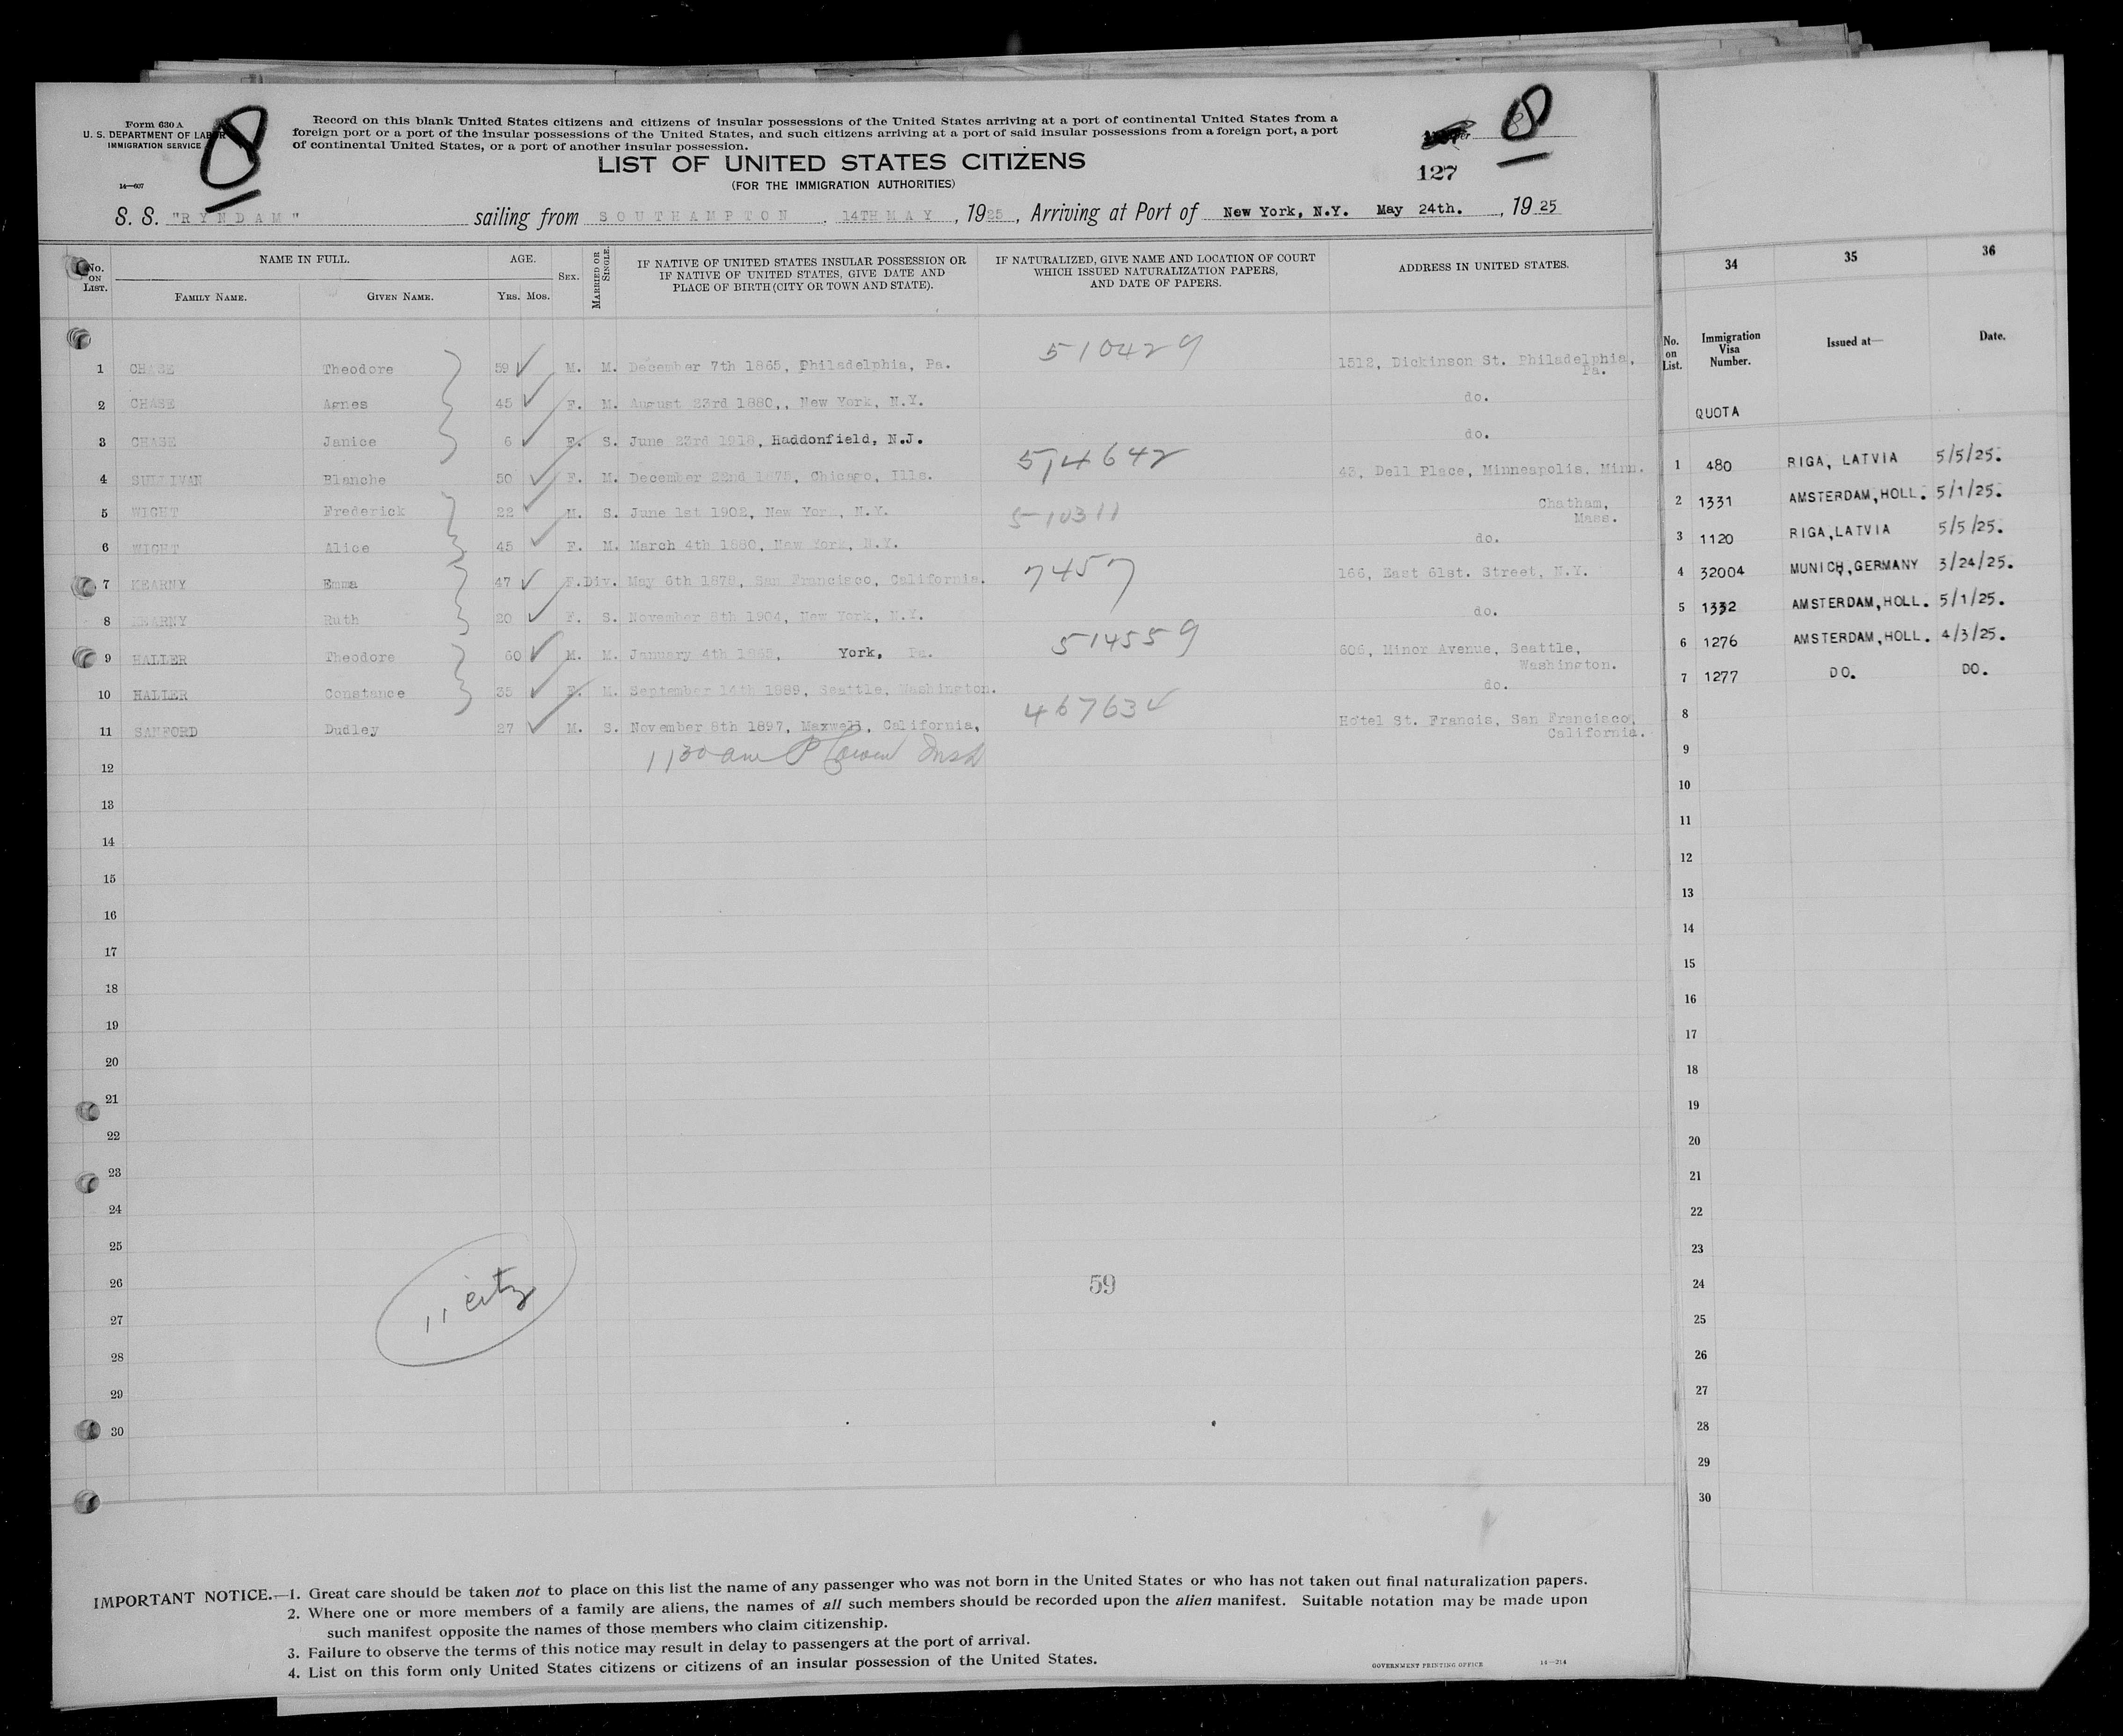 Form 630 A
U. S. DEPARTMENT OF LABOR
IMMIGRATION SERVICE
14—607
8
Record on this blank United States citizens and citizens of insular possessions of the United States arriving at a port of continental United States from a
foreign port or a port of the insular possessions of the United States, and such citizens arriving at a port of said insular possessions from a foreign port, a port
of continental United States, or a port of another insular possession.
LIST OF UNITED STATES CITIZENS
(FOR THE IMMIGRATION AUTHORITIES)
8
127
S. S. "RYNDAM" sailing from SOUTHAMPTON, 14TH MAY, 1925, Arriving at Port of New York, N.Y. May 24th., 1925
No. on List.
NAME IN FULL.
Family Name. Given Name.
AGE.
Yrs. Mos.
Sex.
Married or Single.
IF NATIVE OF UNITED STATES INSULAR POSSESSION OR
IF NATIVE OF UNITED STATES, GIVE DATE AND
PLACE OF BIRTH (CITY OR TOWN AND STATE).
IF NATURALIZED, GIVE NAME AND LOCATION OF COURT
WHICH ISSUED NATURALIZATION PAPERS,
AND DATE OF PAPERS.
ADDRESS IN UNITED STATES.
1 CHASE Theodore 59 M. M. December 7th 1865, Philadelphia, Pa. 510429 1512, Dickinson St. Philadelphia,
Pa.
2 CHASE Agnes 45 F. M. August 23rd 1880,, New York, N.Y. do.
3 CHASE Janice 6 F. S. June 23rd 1918, Haddonfield, N.J. do.
4 SULLIVAN Blanche 50 F. M. December 22nd 1875, Chicago, Ills. 514642 43, Dell Place, Minneapolis, Minn.
5 WIGHT Frederick 22 M. S. June 1st 1902, New York, N.Y. 510311 Chatham,
Mass.
6 WIGHT Alice 45 F. M. March 4th 1880, New York, N.Y. do.
7 KEARNY Emma 47 F. Div. May 6th 1878, San Francisco, California. 7457 166, East 61st. Street, N.Y.
8 KEARNY Ruth 20 F. S. November 8th 1904, New York, N.Y. do.
9 HALLER Theodore 60 M. M. January 4th 1865, York, Pa. 514559 606, Minor Avenue, Seattle,
Washington.
10 HALLER Constance 35 F. M. September 14th 1889, Seattle, Washington. do.
11 SANFORD Dudley 27 M. S. November 8th 1897, Maxwell, California, 467634 Hotel St. Francis, San Francisco,
California.
12 1130 am
13
14
15
16
17
18
19
20
21
22
23
24
25
26 11 citz 59
27
28
29
30
IMPORTANT NOTICE.—1. Great care should be taken not to place on this list the name of any passenger who was not born in the United States or who has not taken out final naturalization papers.
2. Where one or more members of a family are aliens, the names of all such members should be recorded upon the alien manifest. Suitable notation may be made upon
such manifest opposite the names of those members who claim citizenship.
3. Failure to observe the terms of this notice may result in delay to passengers at the port of arrival.
4. List on this form only United States citizens or citizens of an insular possession of the United States.
GOVERNMENT PRINTING OFFICE 14—214
34 35 36
No. on List. Immigration Visa Number. Issued at— Date.
QUOTA
1 480 RIGA, LATVIA 5/5/25.
2 1331 AMSTERDAM, HOLL. 5/1/25.
3 1120 RIGA, LATVIA 5/5/25.
4 32004 MUNICH, GERMANY 3/24/25.
5 1332 AMSTERDAM, HOLL. 5/1/25.
6 1276 AMSTERDAM, HOLL. 4/3/25.
7 1277 DO. DO.
8
9
10
11
12
13
14
15
16
17
18
19
20
21
22
23
24
25
26
27
28
29
30